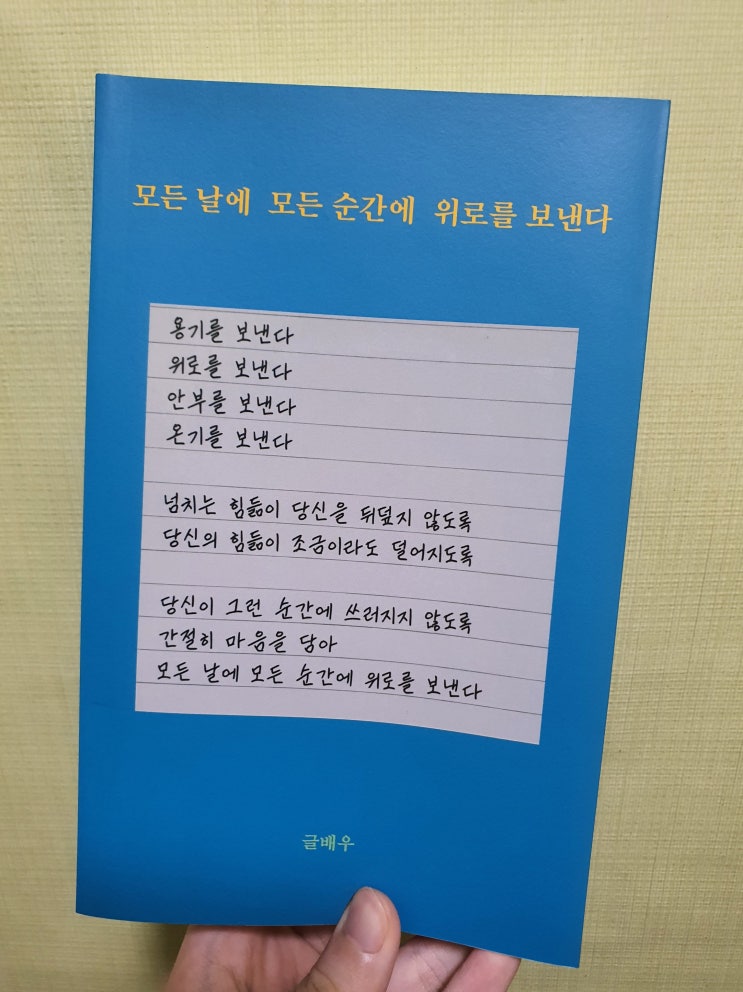 모든 날에 모든 순간에 위로를 보낸다
용기를 보낸다
위로를 보낸다
안부를 보낸다
온기를 보낸다
넘치는 힘듦이 당신을 뒤덮지 않도록
당신의 힘듦이 조금이라도 덜어지도록
당신이 그런 순간에 쓰러지지 않도록
간절히 마음을 담아
모든 날에 모든 순간에 위로를 보낸다
글배우